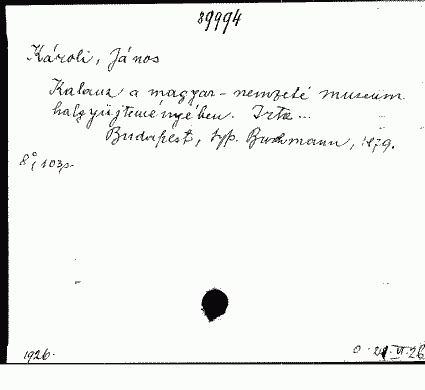 89994
Károli, János
Kalauz a magyar-nemzeti museum
halgyüjteményében. Irta...
Budapest, typ. Buschmann, 1879.
8°, 103p.
1926.
VI. 26